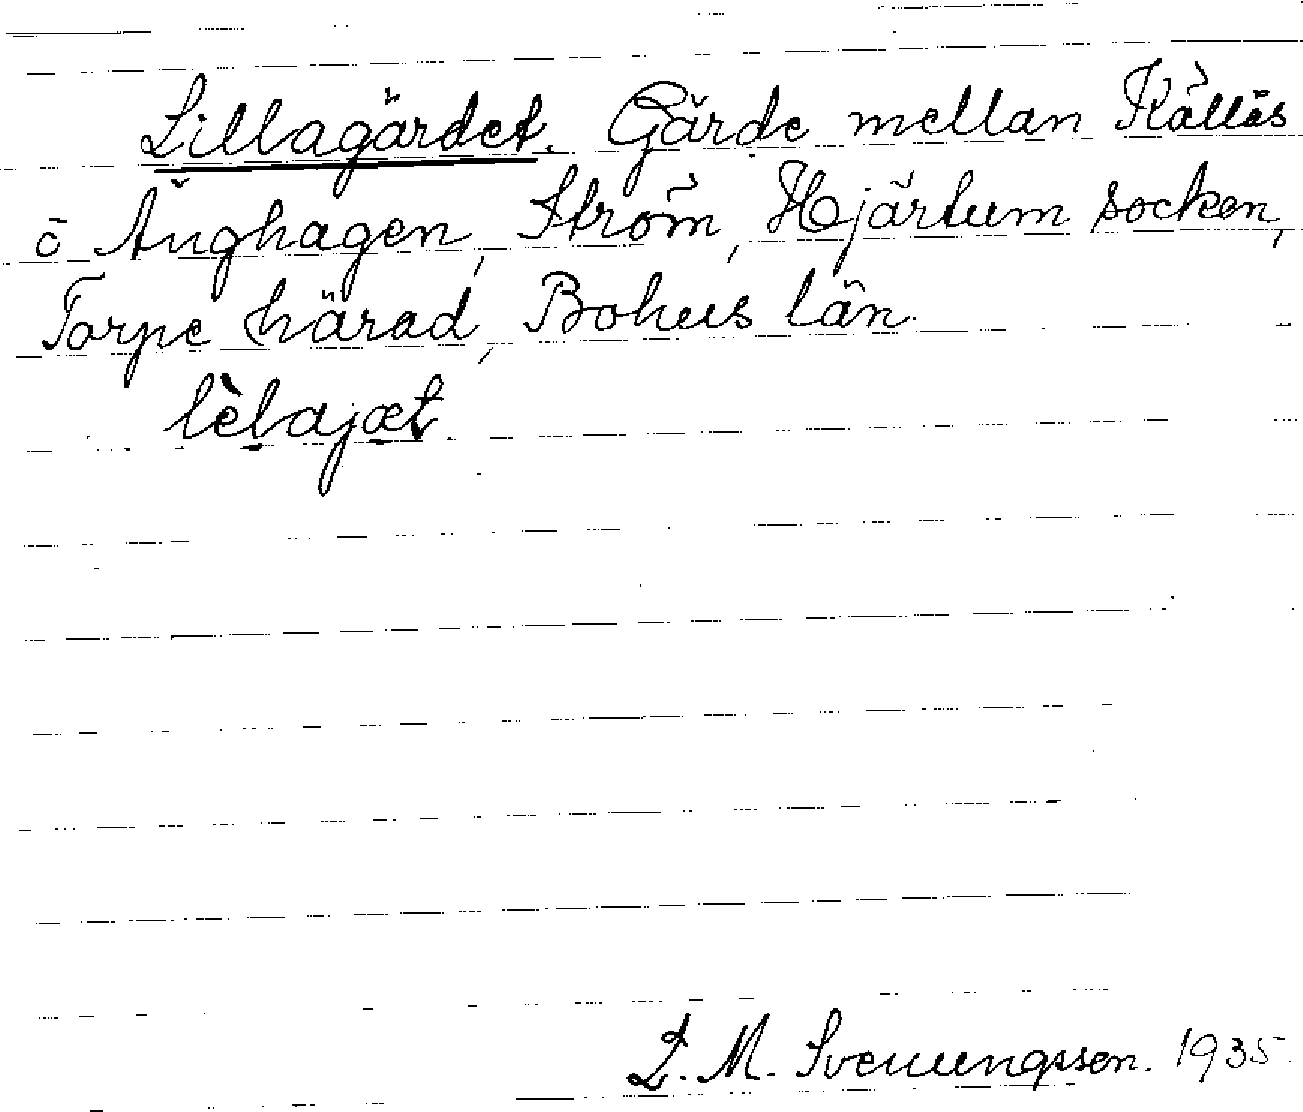 Lillagärdet. Gärde mellan Källäs
o Änghagen, Ström, Hjärtum socken,
Torpe härad, Bohus län.
lèlajæt
L. M. Svenungsson. 1935.